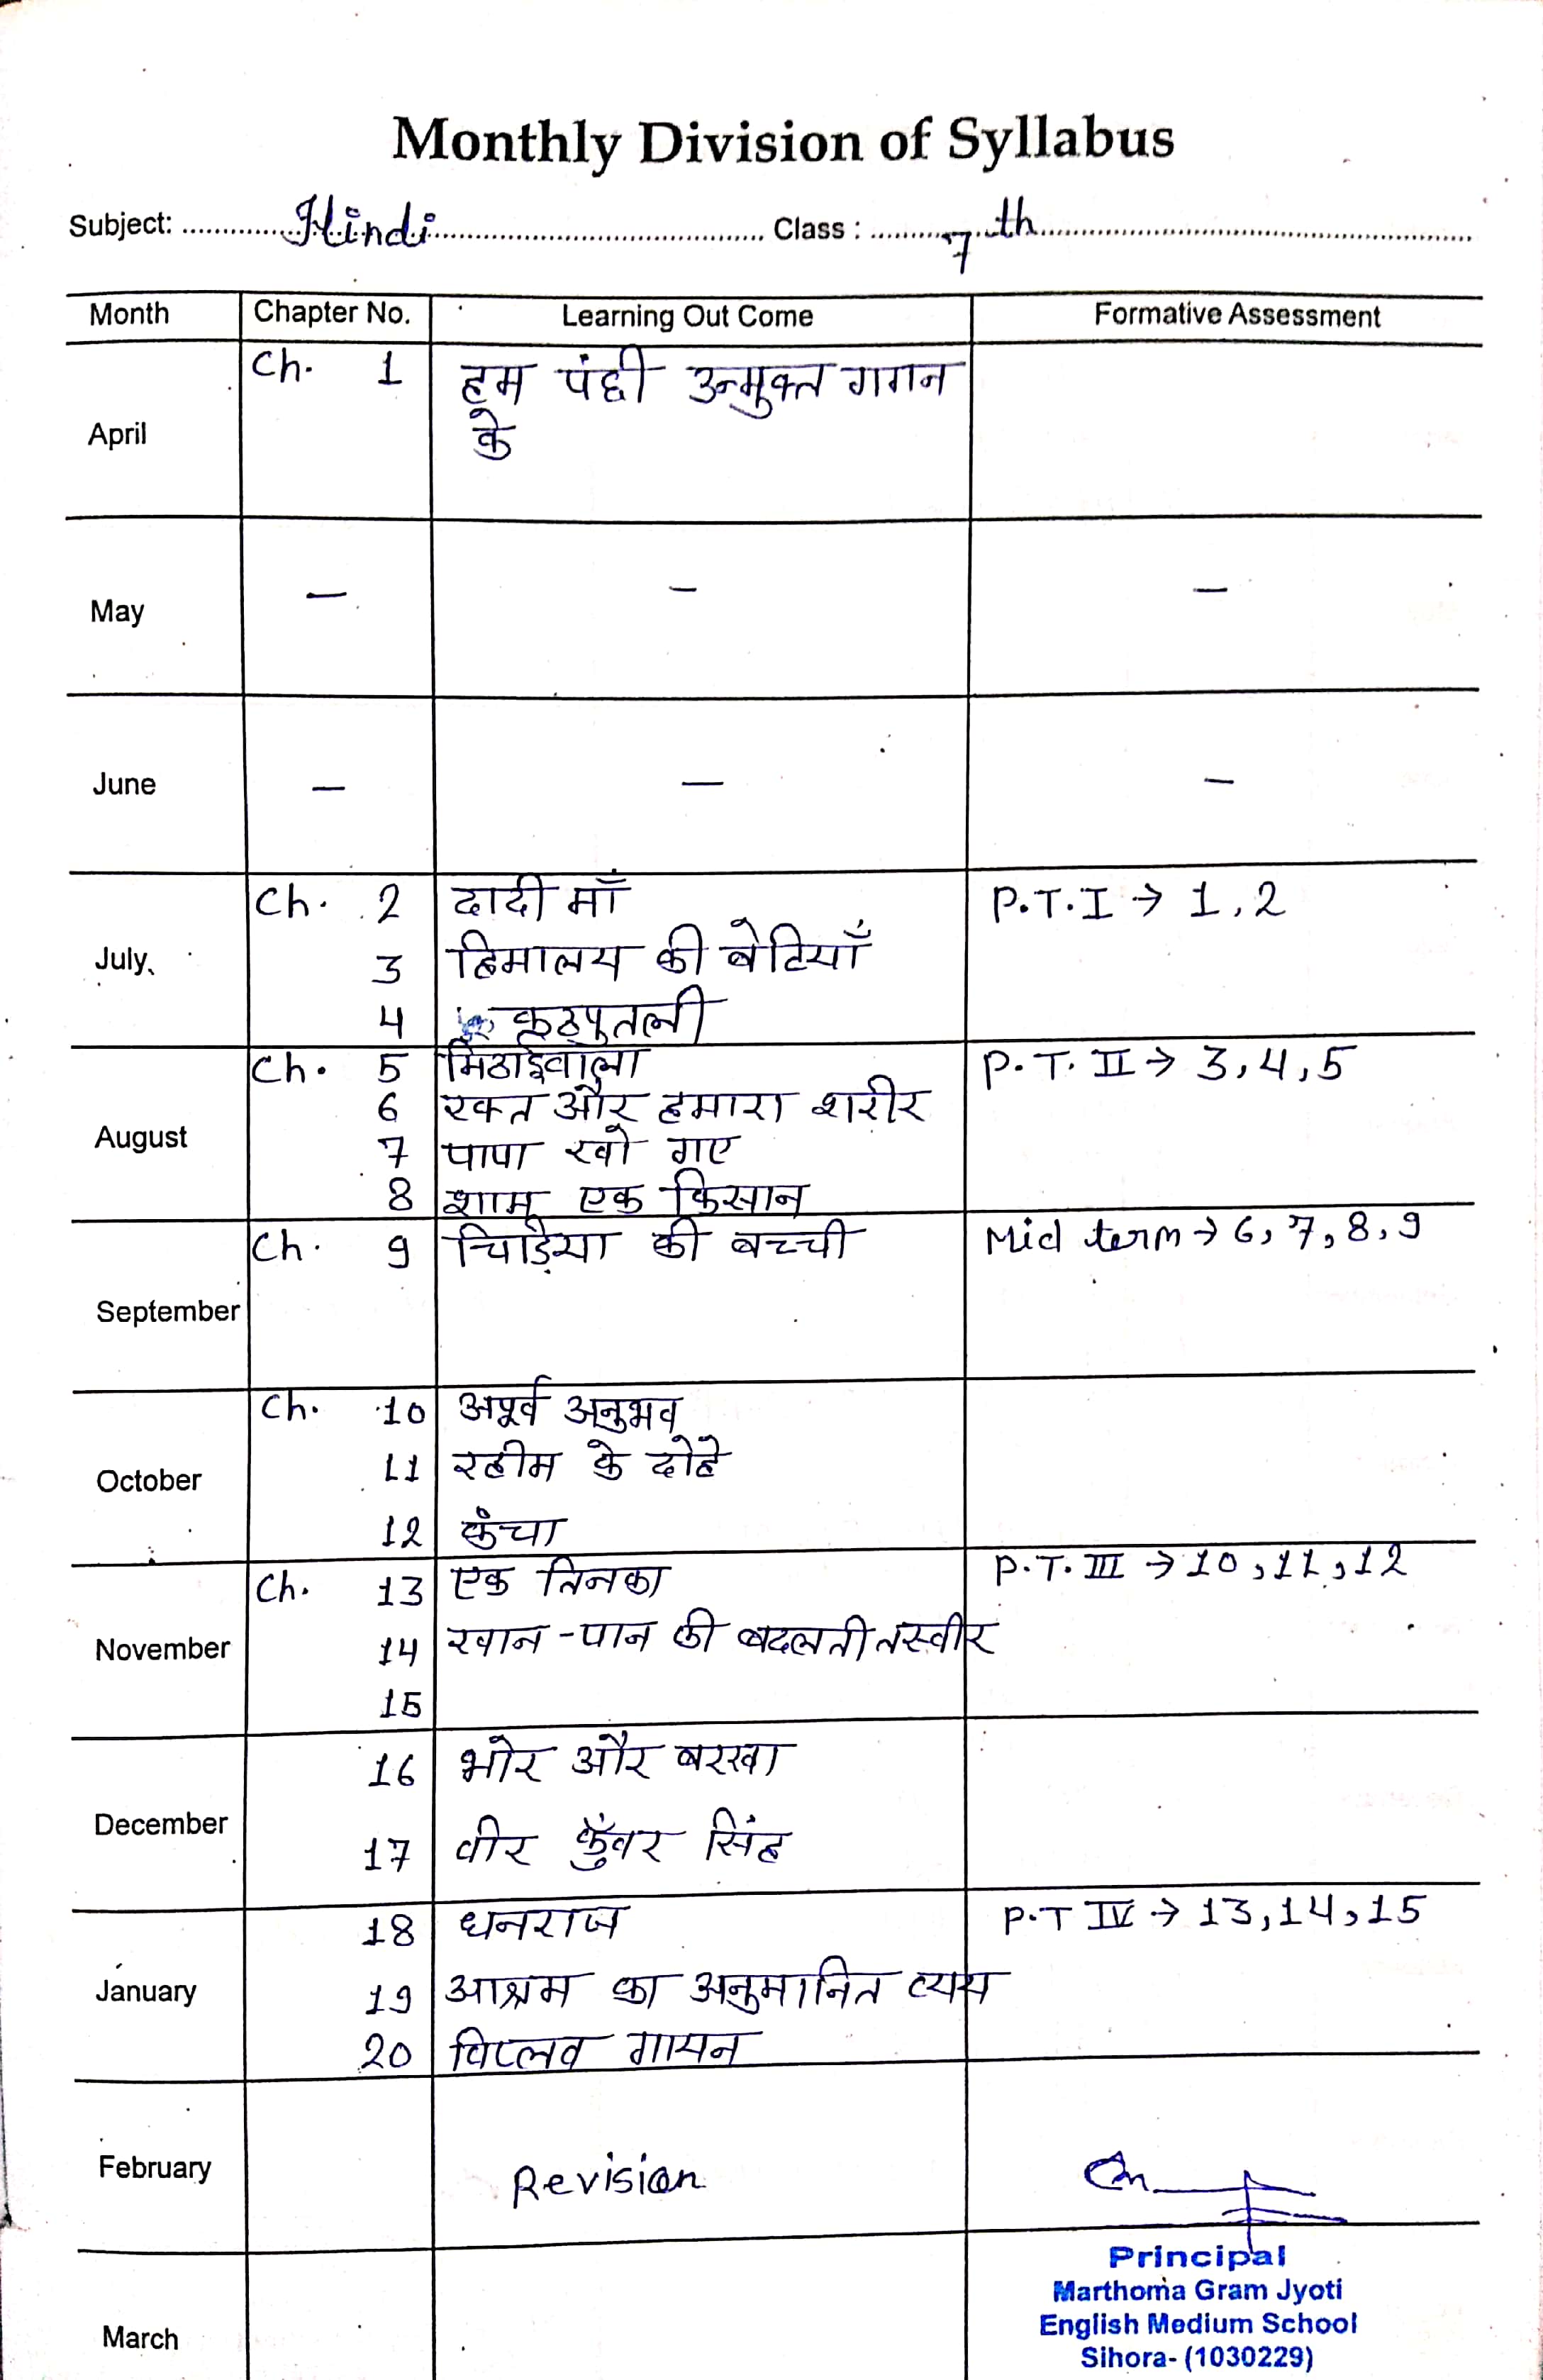 Monthly Division of Syllabus
Subject: Hindi Class : 7th
Month Chapter No. Learning Out Come Formative Assessment
April Ch. 1 हम पंछी उन्मुक्त गगन
के
May — — —
June — — —
July Ch. 2 दादी माँ P.T.I → 1,2
3 हिमालय की बेटियाँ
4 कठपुतली
August Ch. 5 मिठाईवाला P.T. II → 3,4,5
6 रक्त और हमारा शरीर
7 पापा खो गए
8 शाम एक किसान
September Ch. 9 चिड़िया की बच्ची Mid term → 6,7,8,9
October Ch. 10 अपूर्व अनुभव
11 रहीम के दोहे
12 कंचा
November Ch. 13 एक तिनका P.T. III → 10,11,12
14 खान-पान की बदलती तस्वीर
15
December 16 भोर और बरखा
17 वीर कुँवर सिंह
January 18 धनराज P.T IV → 13,14,15
19 आश्रम का अनुमानित व्यय
20 विप्लव गायन
February Revision
Principal
Marthoma Gram Jyoti
English Medium School
March Sihora- (1030229)